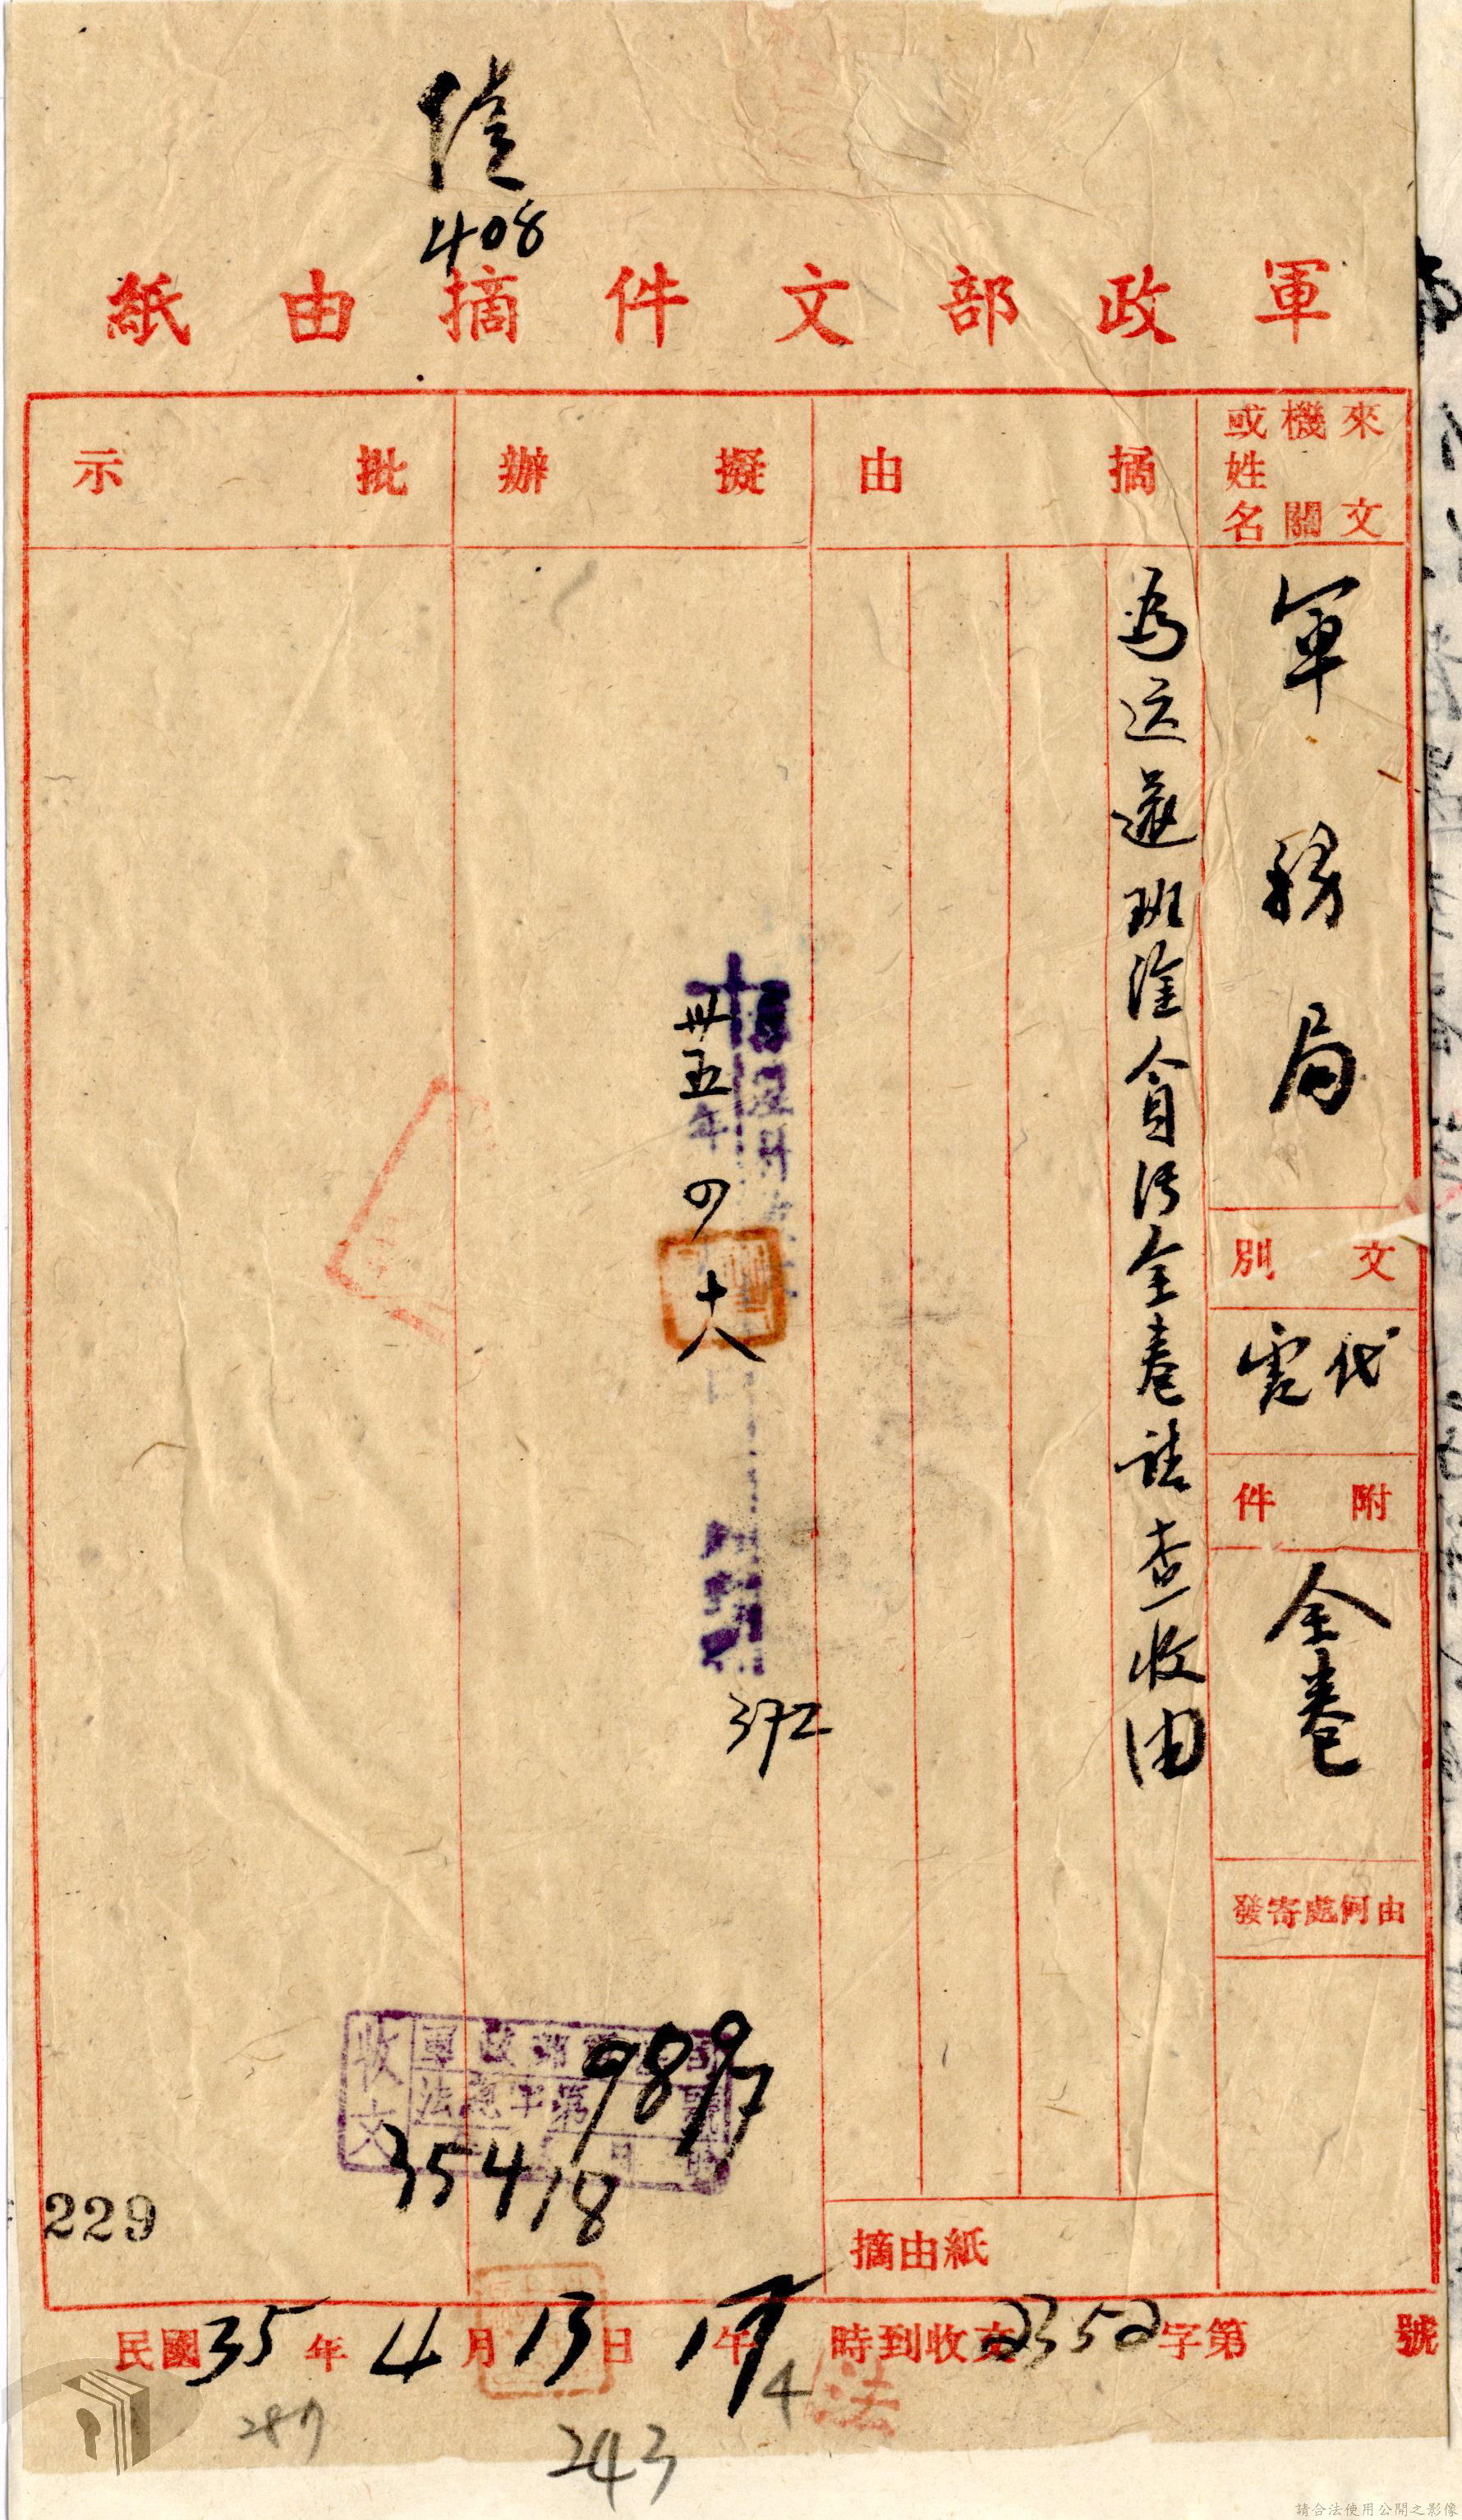 408
軍政部文件摘由紙
來文機關或姓名
軍務局
文別
代電
附件
全卷
由何處寄發
摘由
為運遞班淦貪污全卷請查收由
摘由紙
擬辦
卅五年
四
十八
372
批示
收文
軍政部
法 字第
9897
35418
229
民國35年4月13日 午17時到收文2352字第 號
4
法
287
243
請合法使用公開之影像